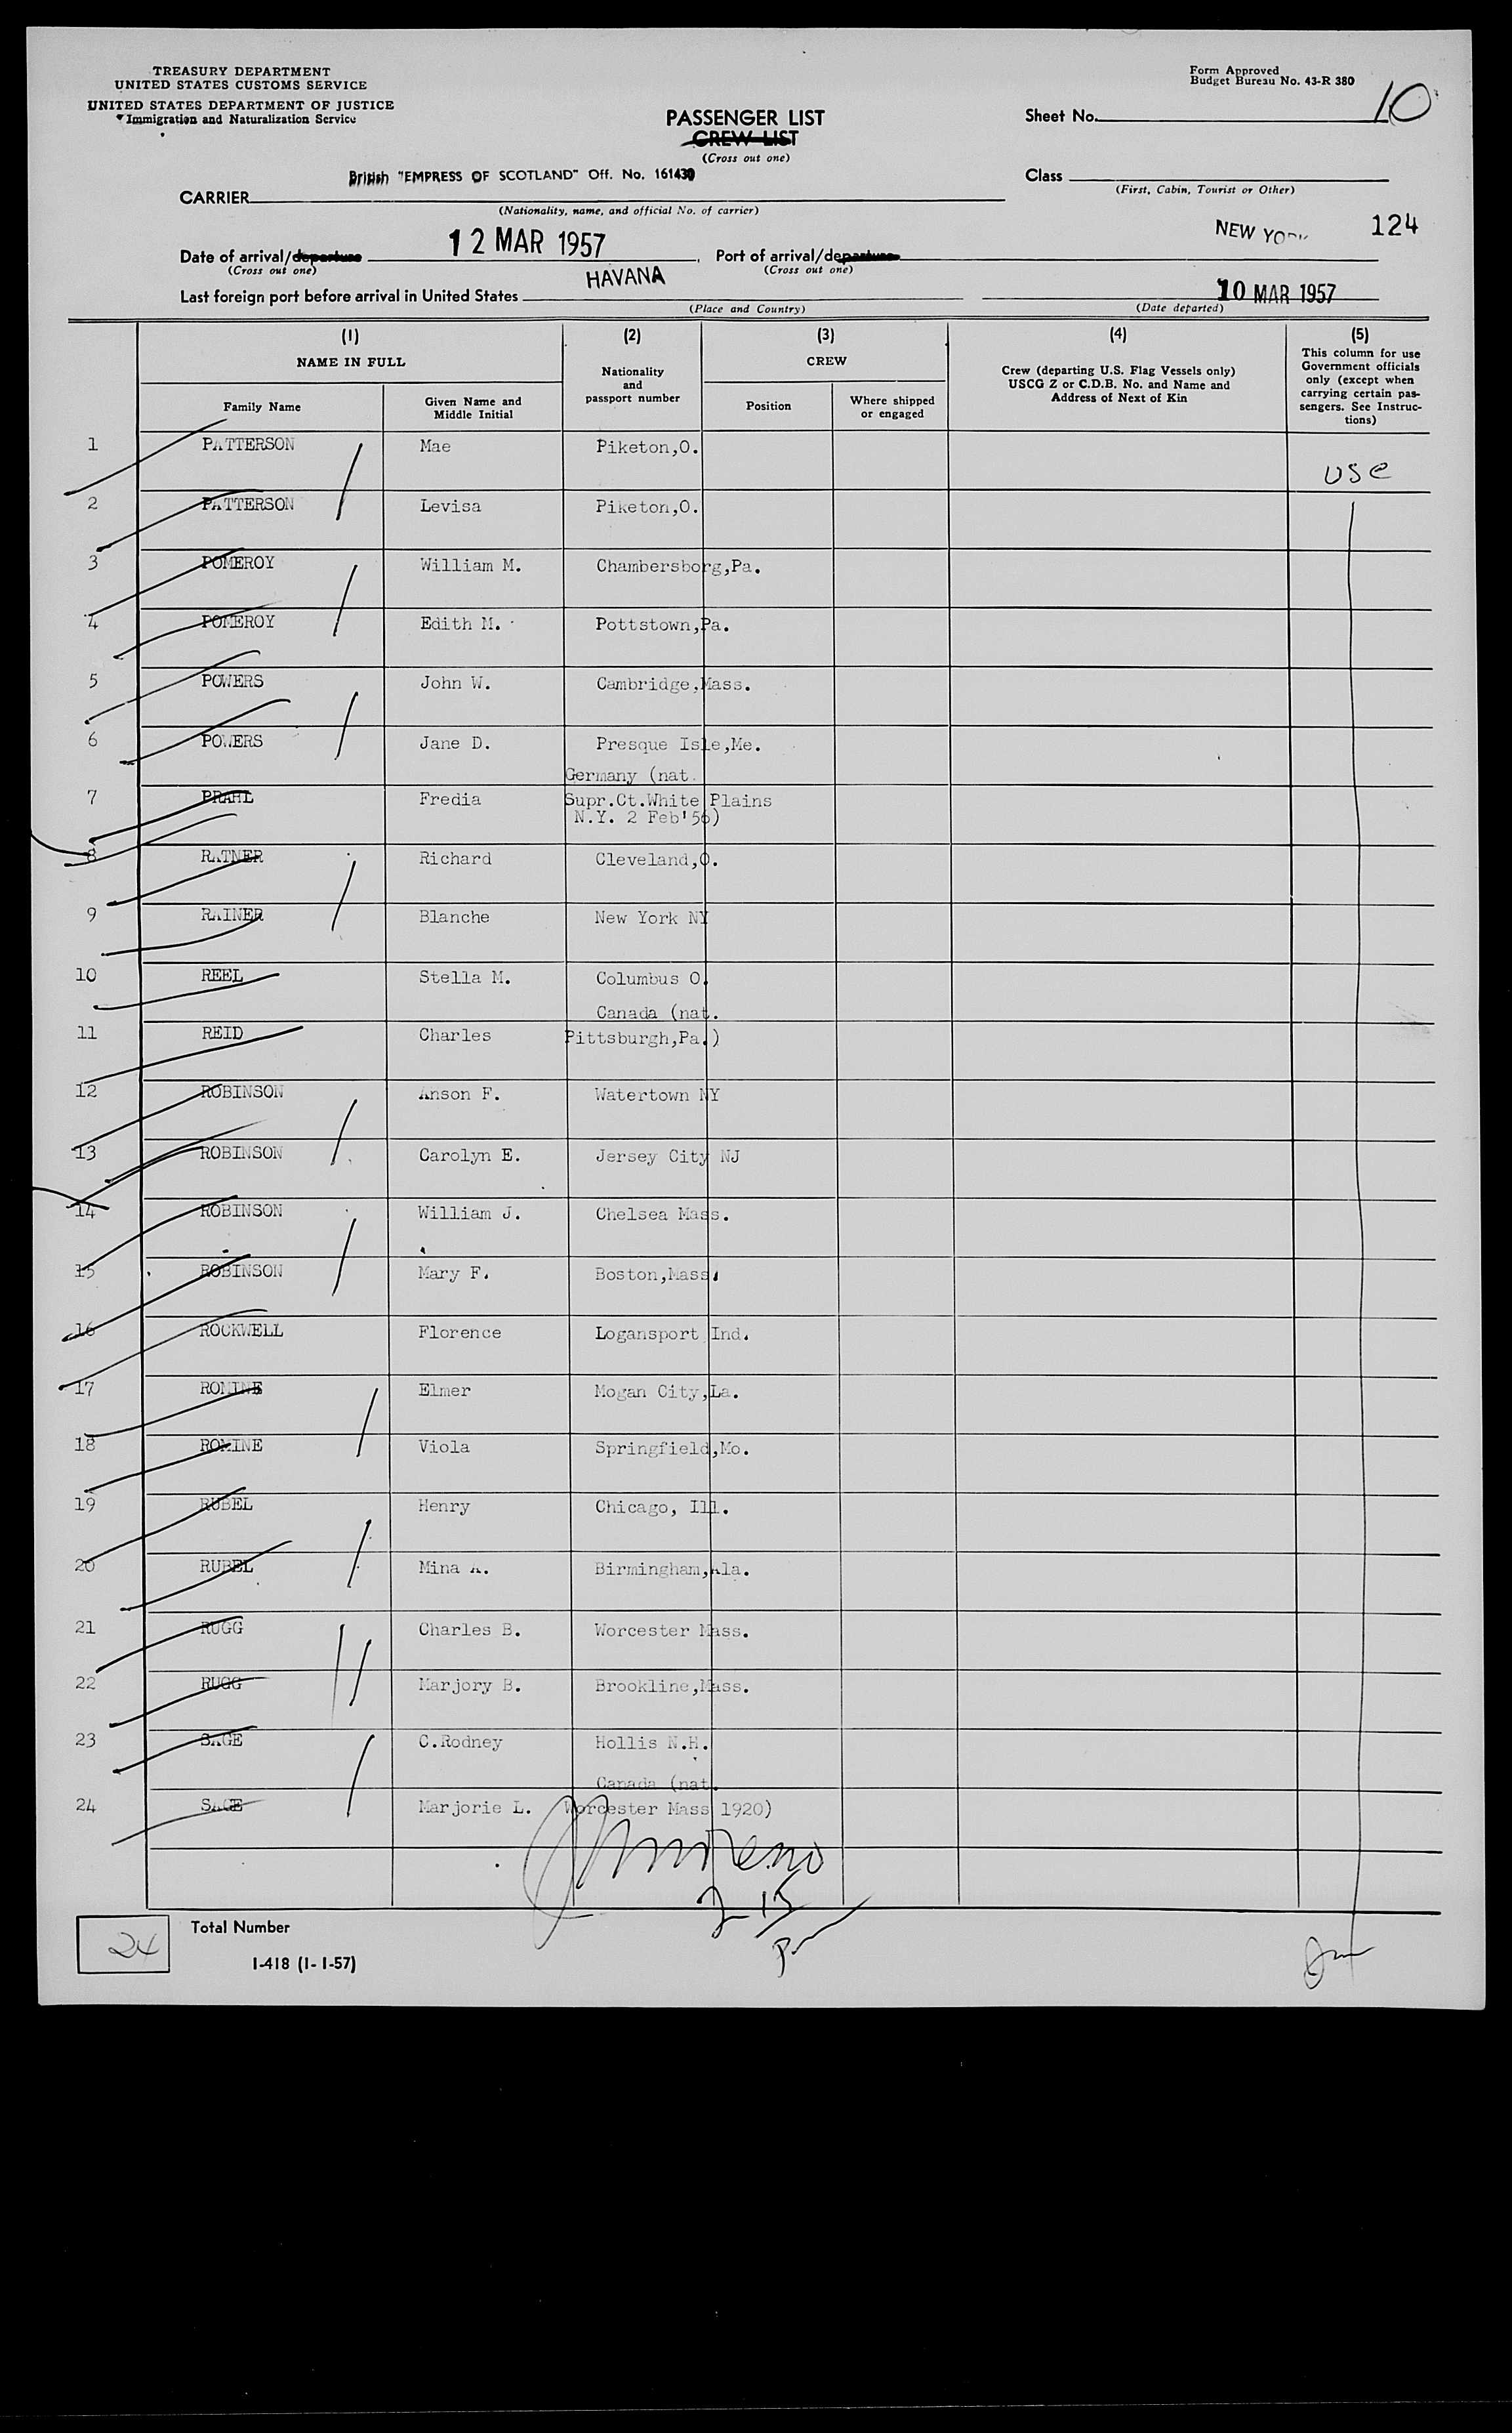 TREASURY DEPARTMENT
UNITED STATES CUSTOMS SERVICE
UNITED STATES DEPARTMENT OF JUSTICE
Immigration and Naturalization Service
Form Approved
Budget Bureau No. 43-R 380
PASSENGER LIST
CREW LIST
(Cross out one)
Sheet No. 10
British "EMPRESS OF SCOTLAND" Off. No. 161430
CARRIER
(Nationality, name, and official No. of carrier)
Class
(First, Cabin, Tourist or Other)
NEW YORK 124
Date of arrival/departure 12 MAR 1957, Port of arrival/departure
(Cross out one) (Cross out one)
Last foreign port before arrival in United States HAVANA 10 MAR 1957
(Place and Country) (Date departed)
(1) (2) (3) (4) (5)
NAME IN FULL
Family Name
Given Name and Middle Initial
Nationality and passport number
CREW
Position
Where shipped or engaged
Crew (departing U.S. Flag Vessels only)
USCG Z or C.D.B. No. and Name and
Address of Next of Kin
This column for use
Government officials
only (except when
carrying certain pas-
sengers. See Instruc-
tions)
1 PATTERSON Mae Piketon,O. USC
2 PATTERSON Levisa Piketon,O.
3 POMEROY William M. Chambersborg,Pa.
4 POMEROY Edith M. Pottstown,Pa.
5 POWERS John W. Cambridge,Mass.
6 POWERS Jane D. Presque Isle,Me.
Germany (nat.
7 PRAHL Fredia Supr.Ct.White Plains
N.Y. 2 Feb'56)
8 RATNER Richard Cleveland,O.
9 RAINER Blanche New York NY
10 REEL Stella M. Columbus O.
Canada (nat.
11 REID Charles Pittsburgh,Pa.)
12 ROBINSON Anson F. Watertown NY
13 ROBINSON Carolyn E. Jersey City NJ
14 ROBINSON William J. Chelsea Mass.
15 ROBINSON Mary F. Boston,Mass.
16 ROCKWELL Florence Logansport Ind.
17 ROMINE Elmer Mogan City,La.
18 ROMINE Viola Springfield,Mo.
19 RUBEL Henry Chicago, Ill.
20 RUBEL Mina A. Birmingham,Ala.
21 RUGG Charles B. Worcester Mass.
22 RUGG Marjory B. Brookline,Mass.
23 SAGE C.Rodney Hollis N.H.
Canada (nat.
24 SAGE Marjorie L. Worcester Mass 1920)
24 Total Number
I-418 (1-1-57)